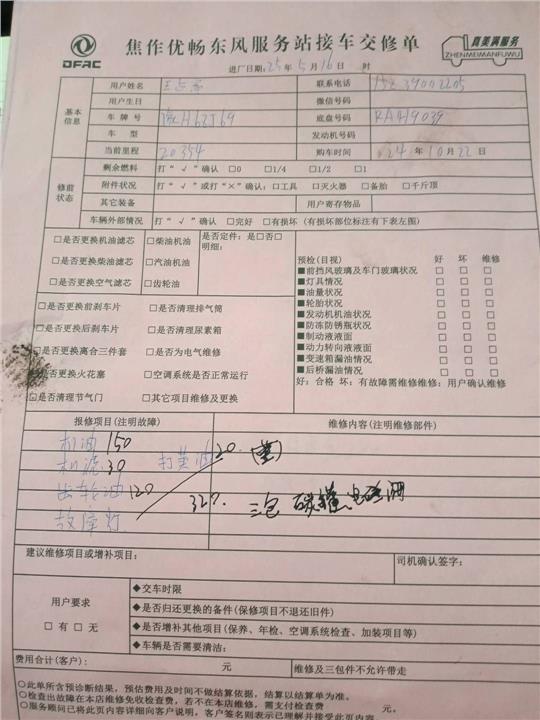 DFAC
焦作优畅东风服务站接车交修单
真美满服务
ZHENMEIMANFUWU
进厂日期:25年5月16日 时
基本信息
用户姓名 联系电话
用户生日 微信号码
车牌号 豫H62J69 底盘号码 RA419039
车型 发动机号码
当前里程 20354 购车时间 24年10月22日
修前状态
剩余燃料 打“√”确认 □0 □1/4 □1/2 □1
附件状况 打“√”或打“×”确认:□工具 □灭火器 □备胎 □千斤顶
其它装备 用户寄存物品
车辆外部情况 打“√”确认 □完好 □有损坏(有损坏部位标注有下表左图)
□是否更换机油滤芯 □柴油机油 是否定件:是□否□
□是否更换柴油滤芯 □汽油机油 明细:
□是否更换空气滤芯 □齿轮油
□是否更换前刹车片 □是否清理排气筒
□是否更换后刹车片 □是否清理尿素箱
□是否更换离合三件套 □是否为电气维修
□是否更换火花塞 □空调系统是否正常运行
□是否清理节气门 □其它项目维修及更换
预检(目视) 好 坏 维修
■前挡风玻璃及车门玻璃状况 □ □ □
■灯具情况 □ □ □
■油量状况 □ □ □
■轮胎状况 □ □ □
■发动机机油状况 □ □ □
■防冻防锈瓶状况 □ □ □
■制动液液面 □ □ □
■动力转向液液面 □ □ □
■变速箱漏油情况 □ □ □
■后桥漏油情况 □ □ □
好:合格 坏:有故障需维修维修:用户确认维修
报修项目(注明故障) 维修内容(注明维修部件)
机油150
机滤30 打黄油20
齿轮油120 320. 三包 碳罐电磁阀
故障灯
建议维修项目或增补项目: 司机确认签字:
用户要求
□有□无
◆交车时限
◆是否归还更换的备件(保修项目不退还旧件)
◆是否增补其他项目(保养、年检、空调系统检查、加装项目等)
◆车辆是否需要清洁:
费用合计(客户): 元 维修及三包件不允许带走
◇此单所含预诊断结果,预估费用及时间不做结算依据,结算以结算单为准。
◇检查出故障在本店维修免收检查费,若不在本店维修,需支付检查费 元。
◇服务顾问已将此页内容详细向客户说明,客户签名则表示已理解并接受此页内容。